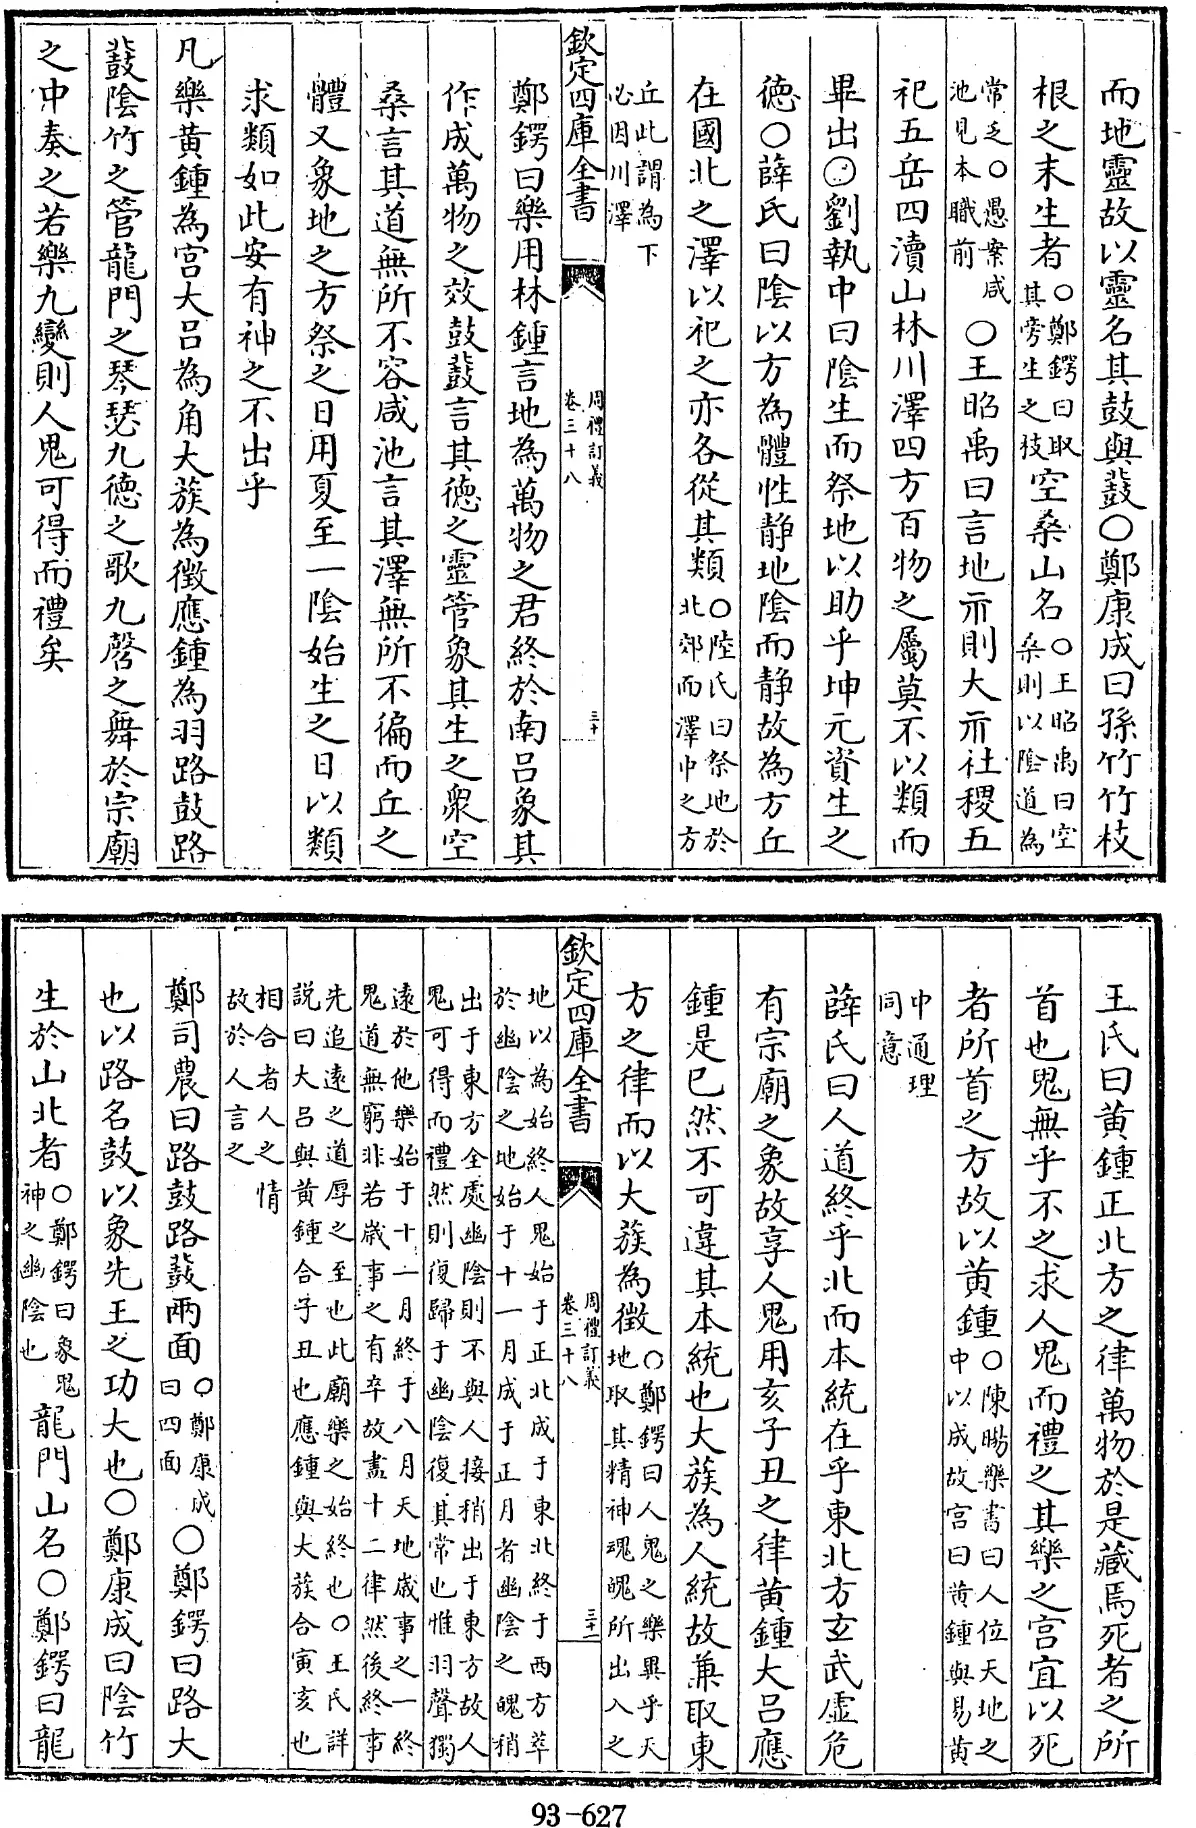 而地靈故以靈名其鼓與鼗○鄭康成曰孫竹竹枝
根之末生者○鄭鍔曰取其旁生之枝空桑山名○王昭禹曰空桑則以陰道為
常乏○愚案咸池見本職前○王昭禹曰言地示則大示社稷五
祀五岳四瀆山林川澤四方百物之屬莫不以類而
畢出○劉執中曰陰生而祭地以助乎坤元資生之
德○薛氏曰陰以方為體性静地陰而静故為方丘
在國北之澤以祀之亦各從其類○陸氏曰祭地於北郊而澤中之方
丘此謂為下必因川澤
欽定四庫全書
周禮訂義
卷三十八
三十
鄭鍔曰樂用林鍾言地為萬物之君終於南吕象其
作成萬物之效鼓鼗言其德之靈管象其生之衆空
桑言其道無所不容咸池言其澤無所不徧而丘之
體又象地之方祭之日用夏至一陰始生之日以類
求類如此安有神之不出乎
凡樂黄鍾為宫大吕為角大蔟為徵應鍾為羽路鼓路
鼗陰竹之管龍門之琴瑟九德之歌九㲈之舞於宗廟
之中奏之若樂九變則人鬼可得而禮矣
王氏曰黄鍾正北方之律萬物於是藏焉死者之所
首也鬼無乎不之求人鬼而禮之其樂之宫宜以死
者所首之方故以黄鍾○陳暘樂書曰人位天地之中以成故宫曰黄鍾與易黄
中通理同意
薛氏曰人道終乎北而本統在乎東北方玄武虚危
有宗廟之象故享人鬼用亥子丑之律黄鍾大吕應
鍾是已然不可違其本統也大蔟為人統故兼取東
方之律而以大蔟為徵○鄭鍔曰人鬼之樂異乎天地取其精神魂魄所出入之
欽定四庫全書
周禮訂義
卷三十八
三十一
地以為始終人鬼始于正北成于東北終于西方萃
於幽陰之地始于十一月成于正月者幽陰之魄稍
出于東方全處幽陰則不與人接稍出于東方故人
鬼可得而禮然則復歸于幽陰復其常也惟羽聲獨
遠於他樂始于十一月終于八月天地歲事之一終
鬼道無窮非若歲事之有卒故盡十二律然後終事
先追遠之道厚之至也此廟樂之始終也○王氏詳
説曰大吕與黄鍾合子丑也應鍾與大蔟合寅亥也
相合者人之情
故於人言之
鄭司農曰路鼓路鼗兩面○鄭康成曰四面○鄭鍔曰路大
也以路名鼓以象先王之功大也○鄭康成曰陰竹
生於山北者○鄭鍔曰象鬼神之幽陰也龍門山名○鄭鍔曰龍
93-627